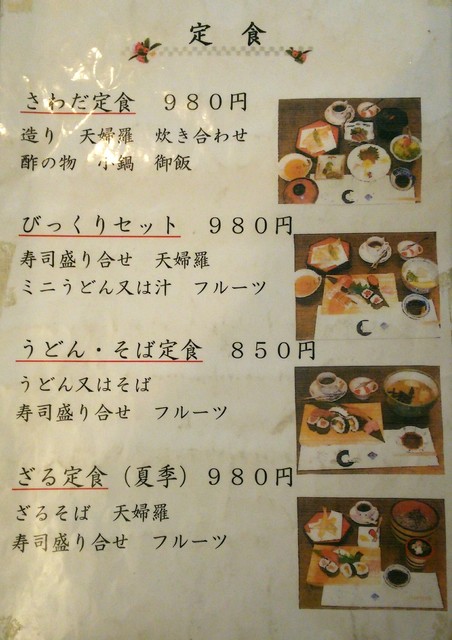 定食
さわだ定食　９８０円
造り　天婦羅　炊き合わせ
酢の物　小鍋　御飯
びっくりセット　９８０円
寿司盛り合せ　天婦羅
ミニうどん又は汁　フルーツ
うどん・そば定食　８５０円
うどん又はそば
寿司盛り合せ　フルーツ
ざる定食（夏季）９８０円
ざるそば　天婦羅
寿司盛り合せ　フルーツ